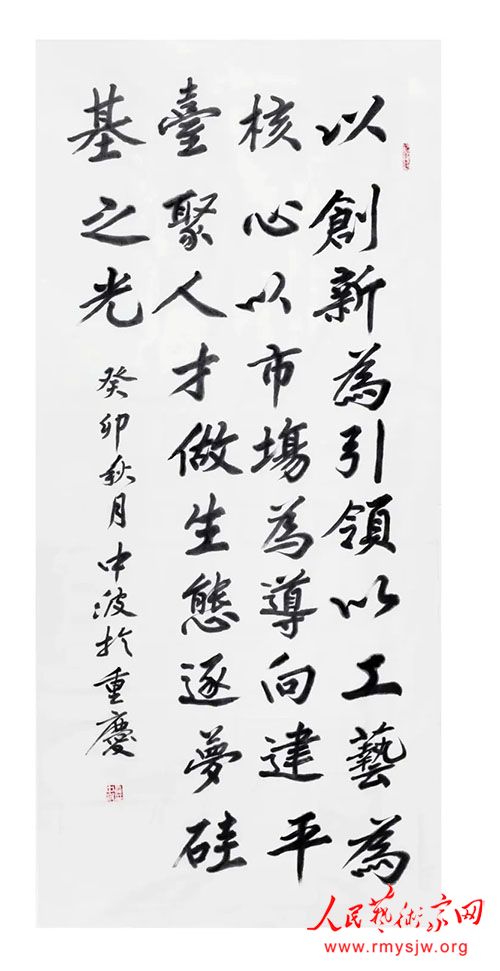 以創新為引領以工藝為
核心以市場為導向建平
臺聚人才做生態逐夢硅
基之光
癸卯秋月中波於重慶
人民藝術家网
www.rmysjw.org